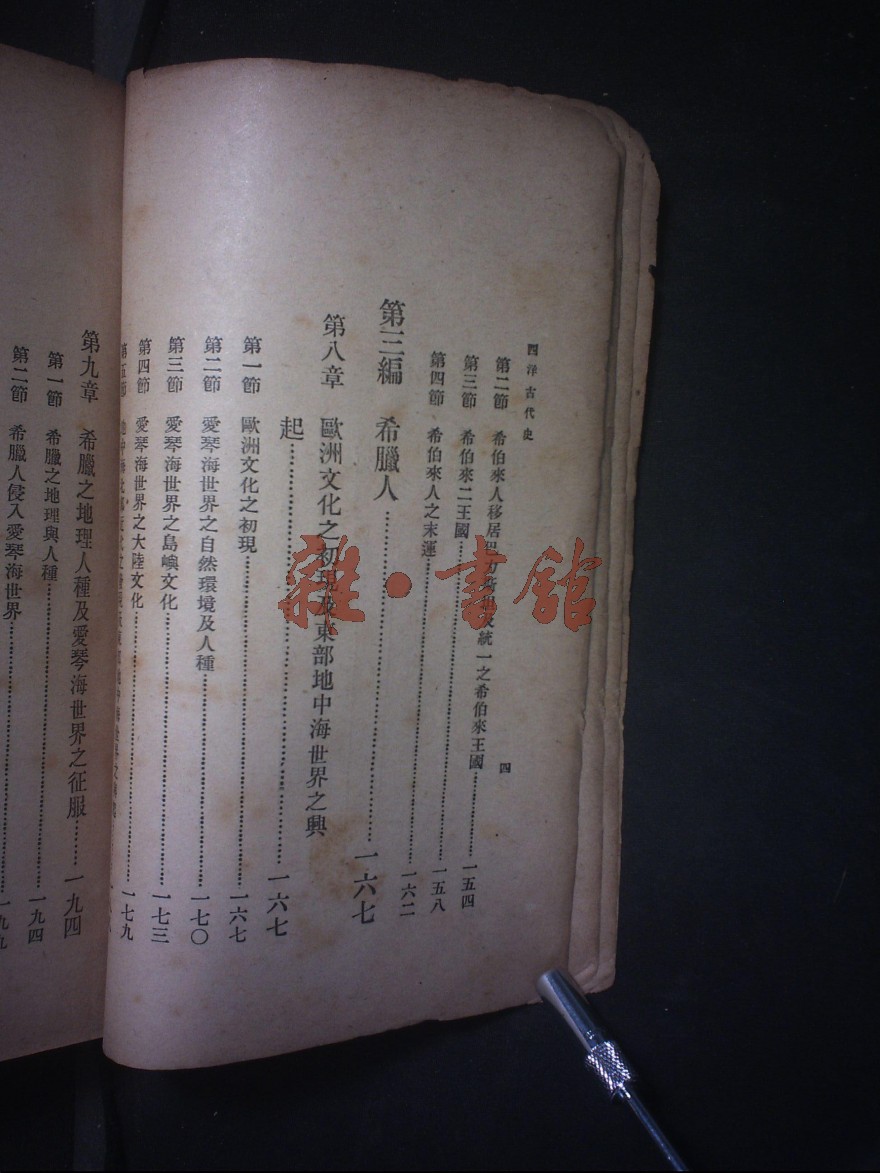 西洋古代史
四
第二節 希伯來人移居巴力斯坦及統一之希伯來王國 一五四
第三節 希伯來二王國 一五八
第四節 希伯來人之末運 一六二
第三編 希臘人 一六七
第八章 歐洲文化之初現及東部地中海世界之興
起 一六七
第一節 歐洲文化之初現 一六七
第二節 愛琴海世界之自然環境及人種 一七〇
第三節 愛琴海世界之島嶼文化 一七三
第四節 愛琴海世界之大陸文化 一七九
第五節
第九章 希臘之地理人種及愛琴海世界之征服 一九四
第一節 希臘之地理與人種 一九四
第二節 希臘人侵入愛琴海世界 一九九
雜·書館